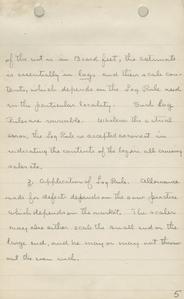 of the unit is in Board feet, the estimate
is essentially in logs, and their scale con-
tents, which depends on the Log Rule used
in the particular locality. Such Log
Rules are variable. Whatever the actual
error, the Log Rule is accepted as correct in
indicating the contents of the logs in all cruising
sales etc.
3. Application of Log Rule. Allowance
made for defect depends on the saw practice
which depends on the market. The scaler
may also either scale the small end or the
large end, and he may or may not throw
out the even inch.
5